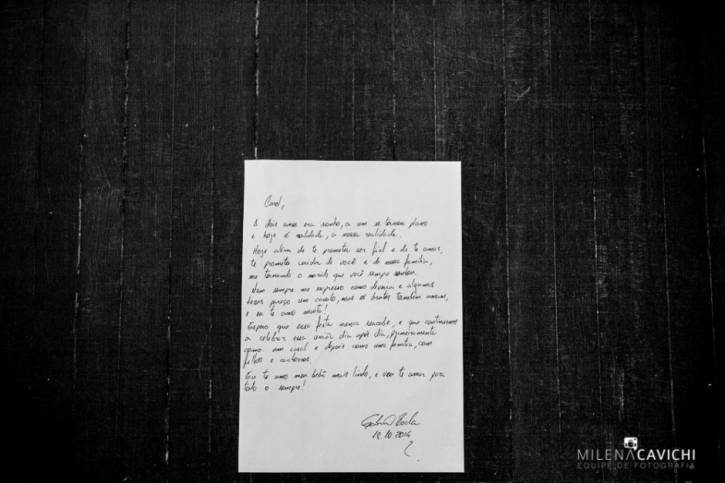 Carol,
A dois anos era sonho, a um se tornou plano
e hoje é realidade, a nossa realidade.
Hoje além de te prometer ser fiel e de te amar,
te prometo cuidar de você e de nossa família,
me tornando o marido que você sempre sonhou.
Nem sempre me expresso como deveria e algumas
vezes pareço um, mas os brutos também amam,
e eu te amo muito!
Espero que essa festa nunca acabe, e que continuemos
a celebrar essa união dia após dia, primeiramente
como um casal e depois como uma família, com
filhos e cachorros.
Eu te amo meu bebê mais lindo, e vou te amar para
todo o sempre!
18.10.2014
MILENA CAVICHI
EQUIPE DE FOTOGRAFIA